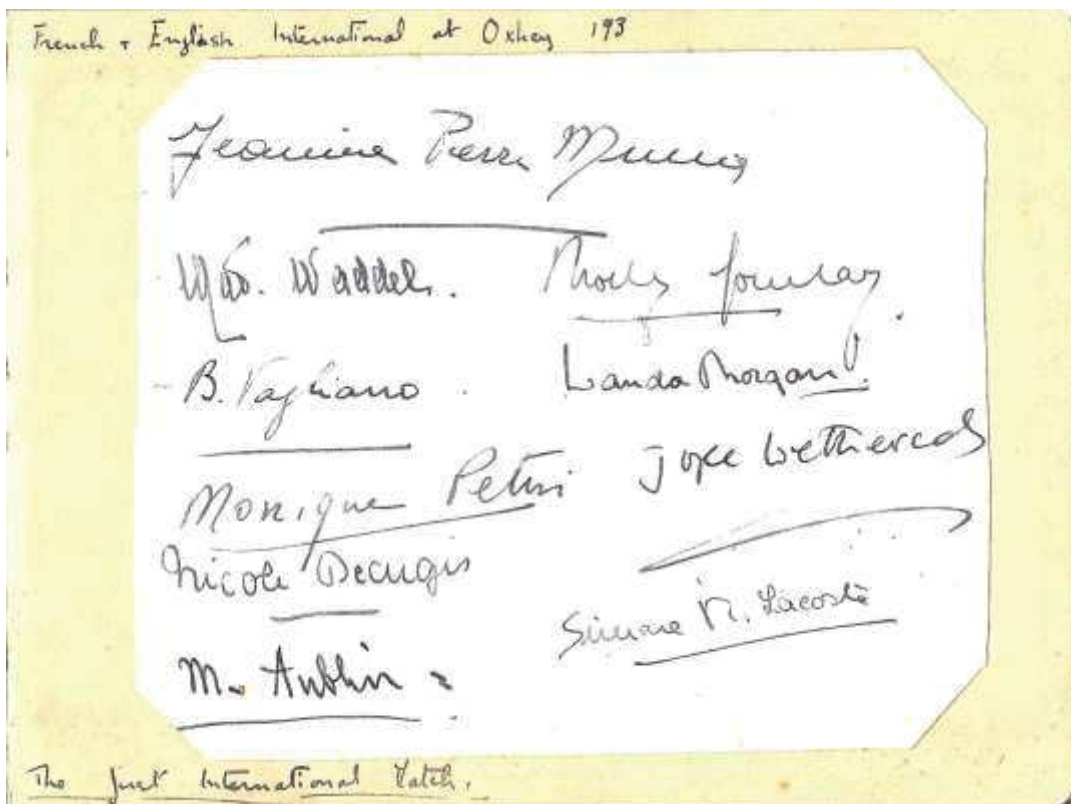 French + English International at Oxhey 193
Jeannine Pierre Munier
Mrs. Waddell. Molly Gourlay.
B. Vagliano. Wanda Morgan.
Monique Petin Joyce Wethered
Nicole Decugis
Simone R. Lacoste
M. Aublin
The first International Match.